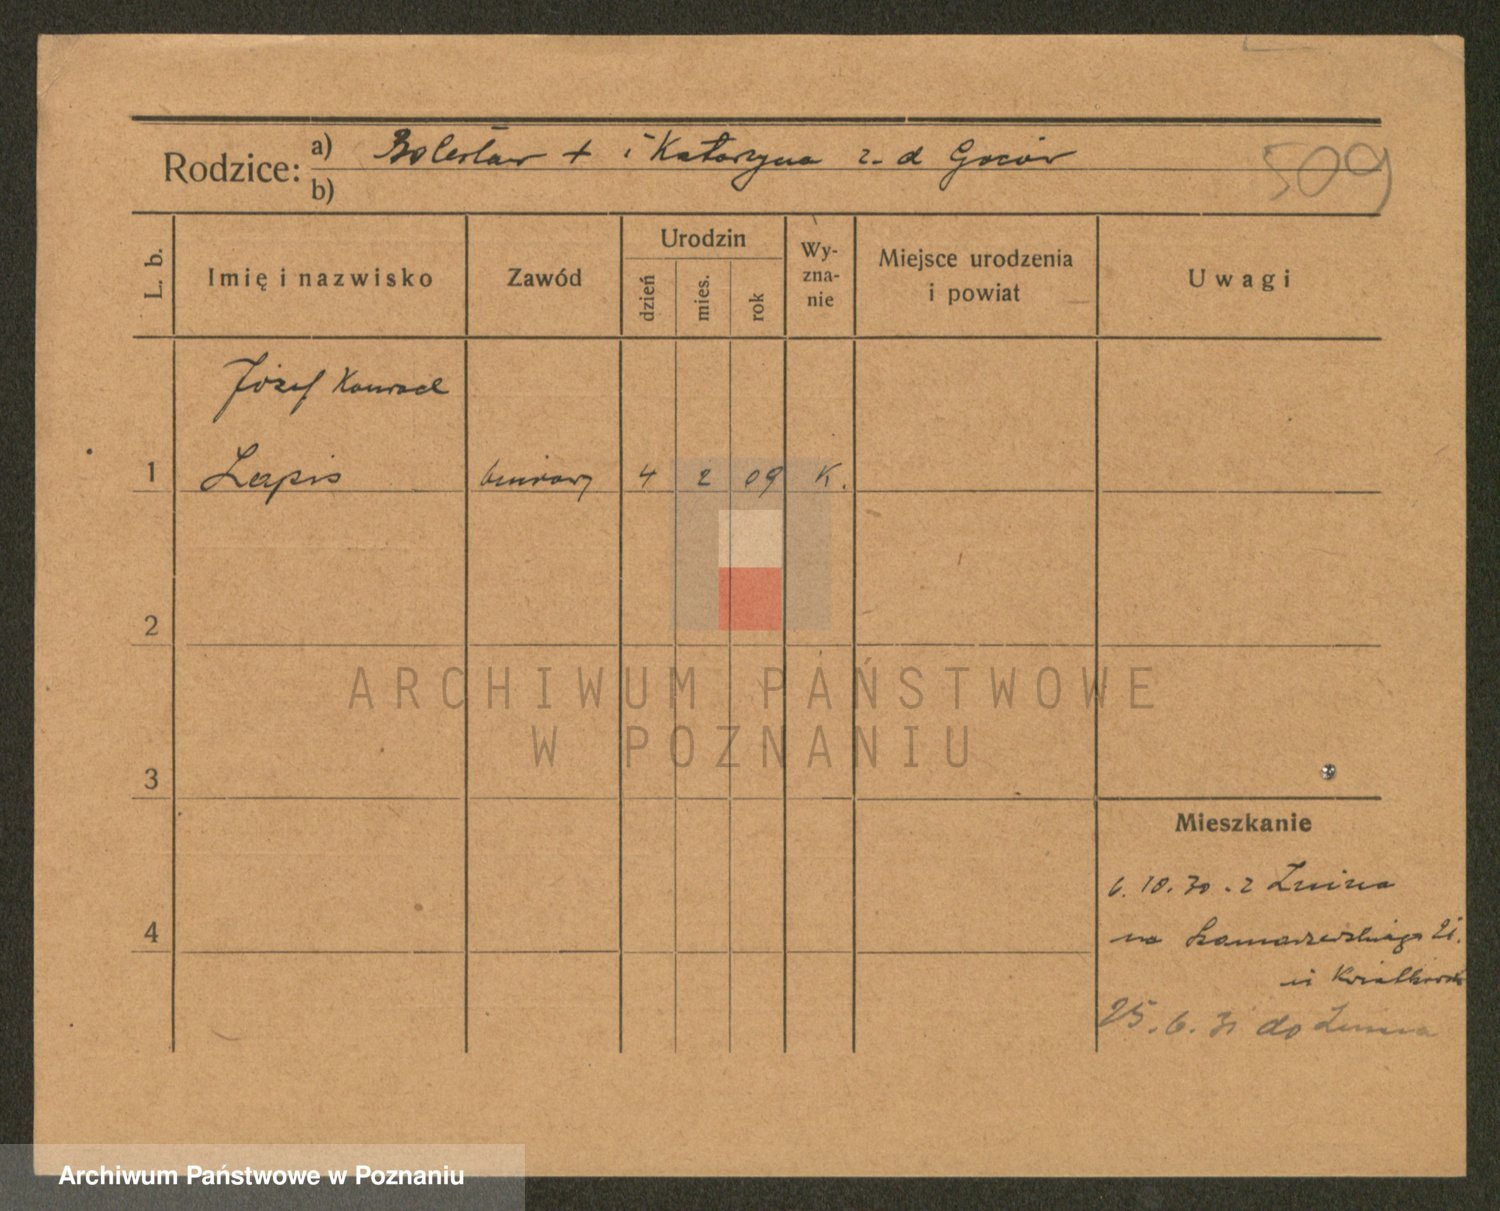 Rodzice: a) Bolesław + i Katarzyna z d Gocór
b)
509
L. b.
Imię i nazwisko
Zawód
Urodzin
dzień
mies.
rok
Wy-
zna-
nie
Miejsce urodzenia
i powiat
Uwagi
Józef Konrad
1 Łapis biurowy 4 2 09 K.
2
3
4
Mieszkanie
6. 10. 30. z Żnina
na Szamarzewskiego 21.
u
25. 6. 31 do Żnina
ARCHIWUM PAŃSTWOWE
W POZNANIU
Archiwum Państwowe w Poznaniu